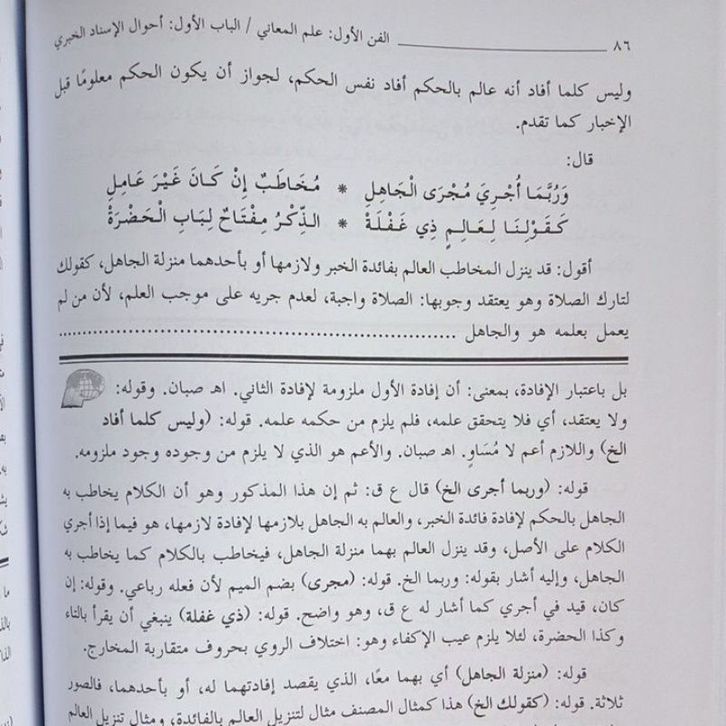 ٨٦ الفن الأول: علم المعاني / الباب الأول: أحوال الإسناد الخبري
وليس كلما أفاد أنه عالم بالحكم أفاد نفس الحكم، لجواز أن يكون الحكم معلومًا قبل
الإخبار كما تقدم.
قال:
وَرُبَّمَا أُجْرِيَ مُجْرَى الْجَاهِلِ * مُخَاطَبٌ إِنْ كَانَ غَيْرَ عَامِلِ
كَقَوْلِنَا لِعَالِمٍ ذِي غَفْلَةْ * الذِّكْرُ مِفْتَاحٌ لِبَابِ الْحَضْرَةْ
أقول: قد ينزل المخاطب العالم بفائدة الخبر ولازمها أو بأحدهما منزلة الجاهل، كقولك
لتارك الصلاة وهو يعتقد وجوبها: الصلاة واجبة، لعدم جريه على موجب العلم، لأن من لم
يعمل بعلمه هو والجاهل ................................................................
بل باعتبار الإفادة، بمعنى: أن إفادة الأول ملزومة لإفادة الثاني. اهـ صبان. وقوله:
ولا يعتقد، أي فلا يتحقق علمه، فلم يلزم من حكمه علمه. قوله: (وليس كلما أفاد
الخ) واللازم أعم لا مُسَاوٍ. اهـ صبان. والأعم هو الذي لا يلزم من وجوده وجود ملزومه.
قوله: (وربما أجرى الخ) قال ع ق: ثم إن هذا المذكور وهو أن الكلام يخاطب به
الجاهل بالحكم لإفادة فائدة الخبر، والعالم به الجاهل بلازمها لإفادة لازمها، هو فيما إذا أجري
الكلام على الأصل، وقد ينزل العالم بهما منزلة الجاهل، فيخاطب بالكلام كما يخاطب به
الجاهل، وإليه أشار بقوله: وربما الخ. قوله: (مجرى) بضم الميم لأن فعله رباعي. وقوله: إن
كان، قيد في أجري كما أشار له ع ق، وهو واضح. قوله: (ذي غفلة) ينبغي أن يقرأ بالتاء
وكذا الحضرة، لئلا يلزم عيب الإكفاء وهو: اختلاف الروي بحروف متقاربة المخارج.
قوله: (منزلة الجاهل) أي بهما معًا، الذي يقصد إفادتهما له، أو بأحدهما، فالصور
ثلاثة. قوله: (كقولك الخ) هذا كمثال المصنف مثال لتنزيل العالم بالفائدة، ومثال تنزيل العالم